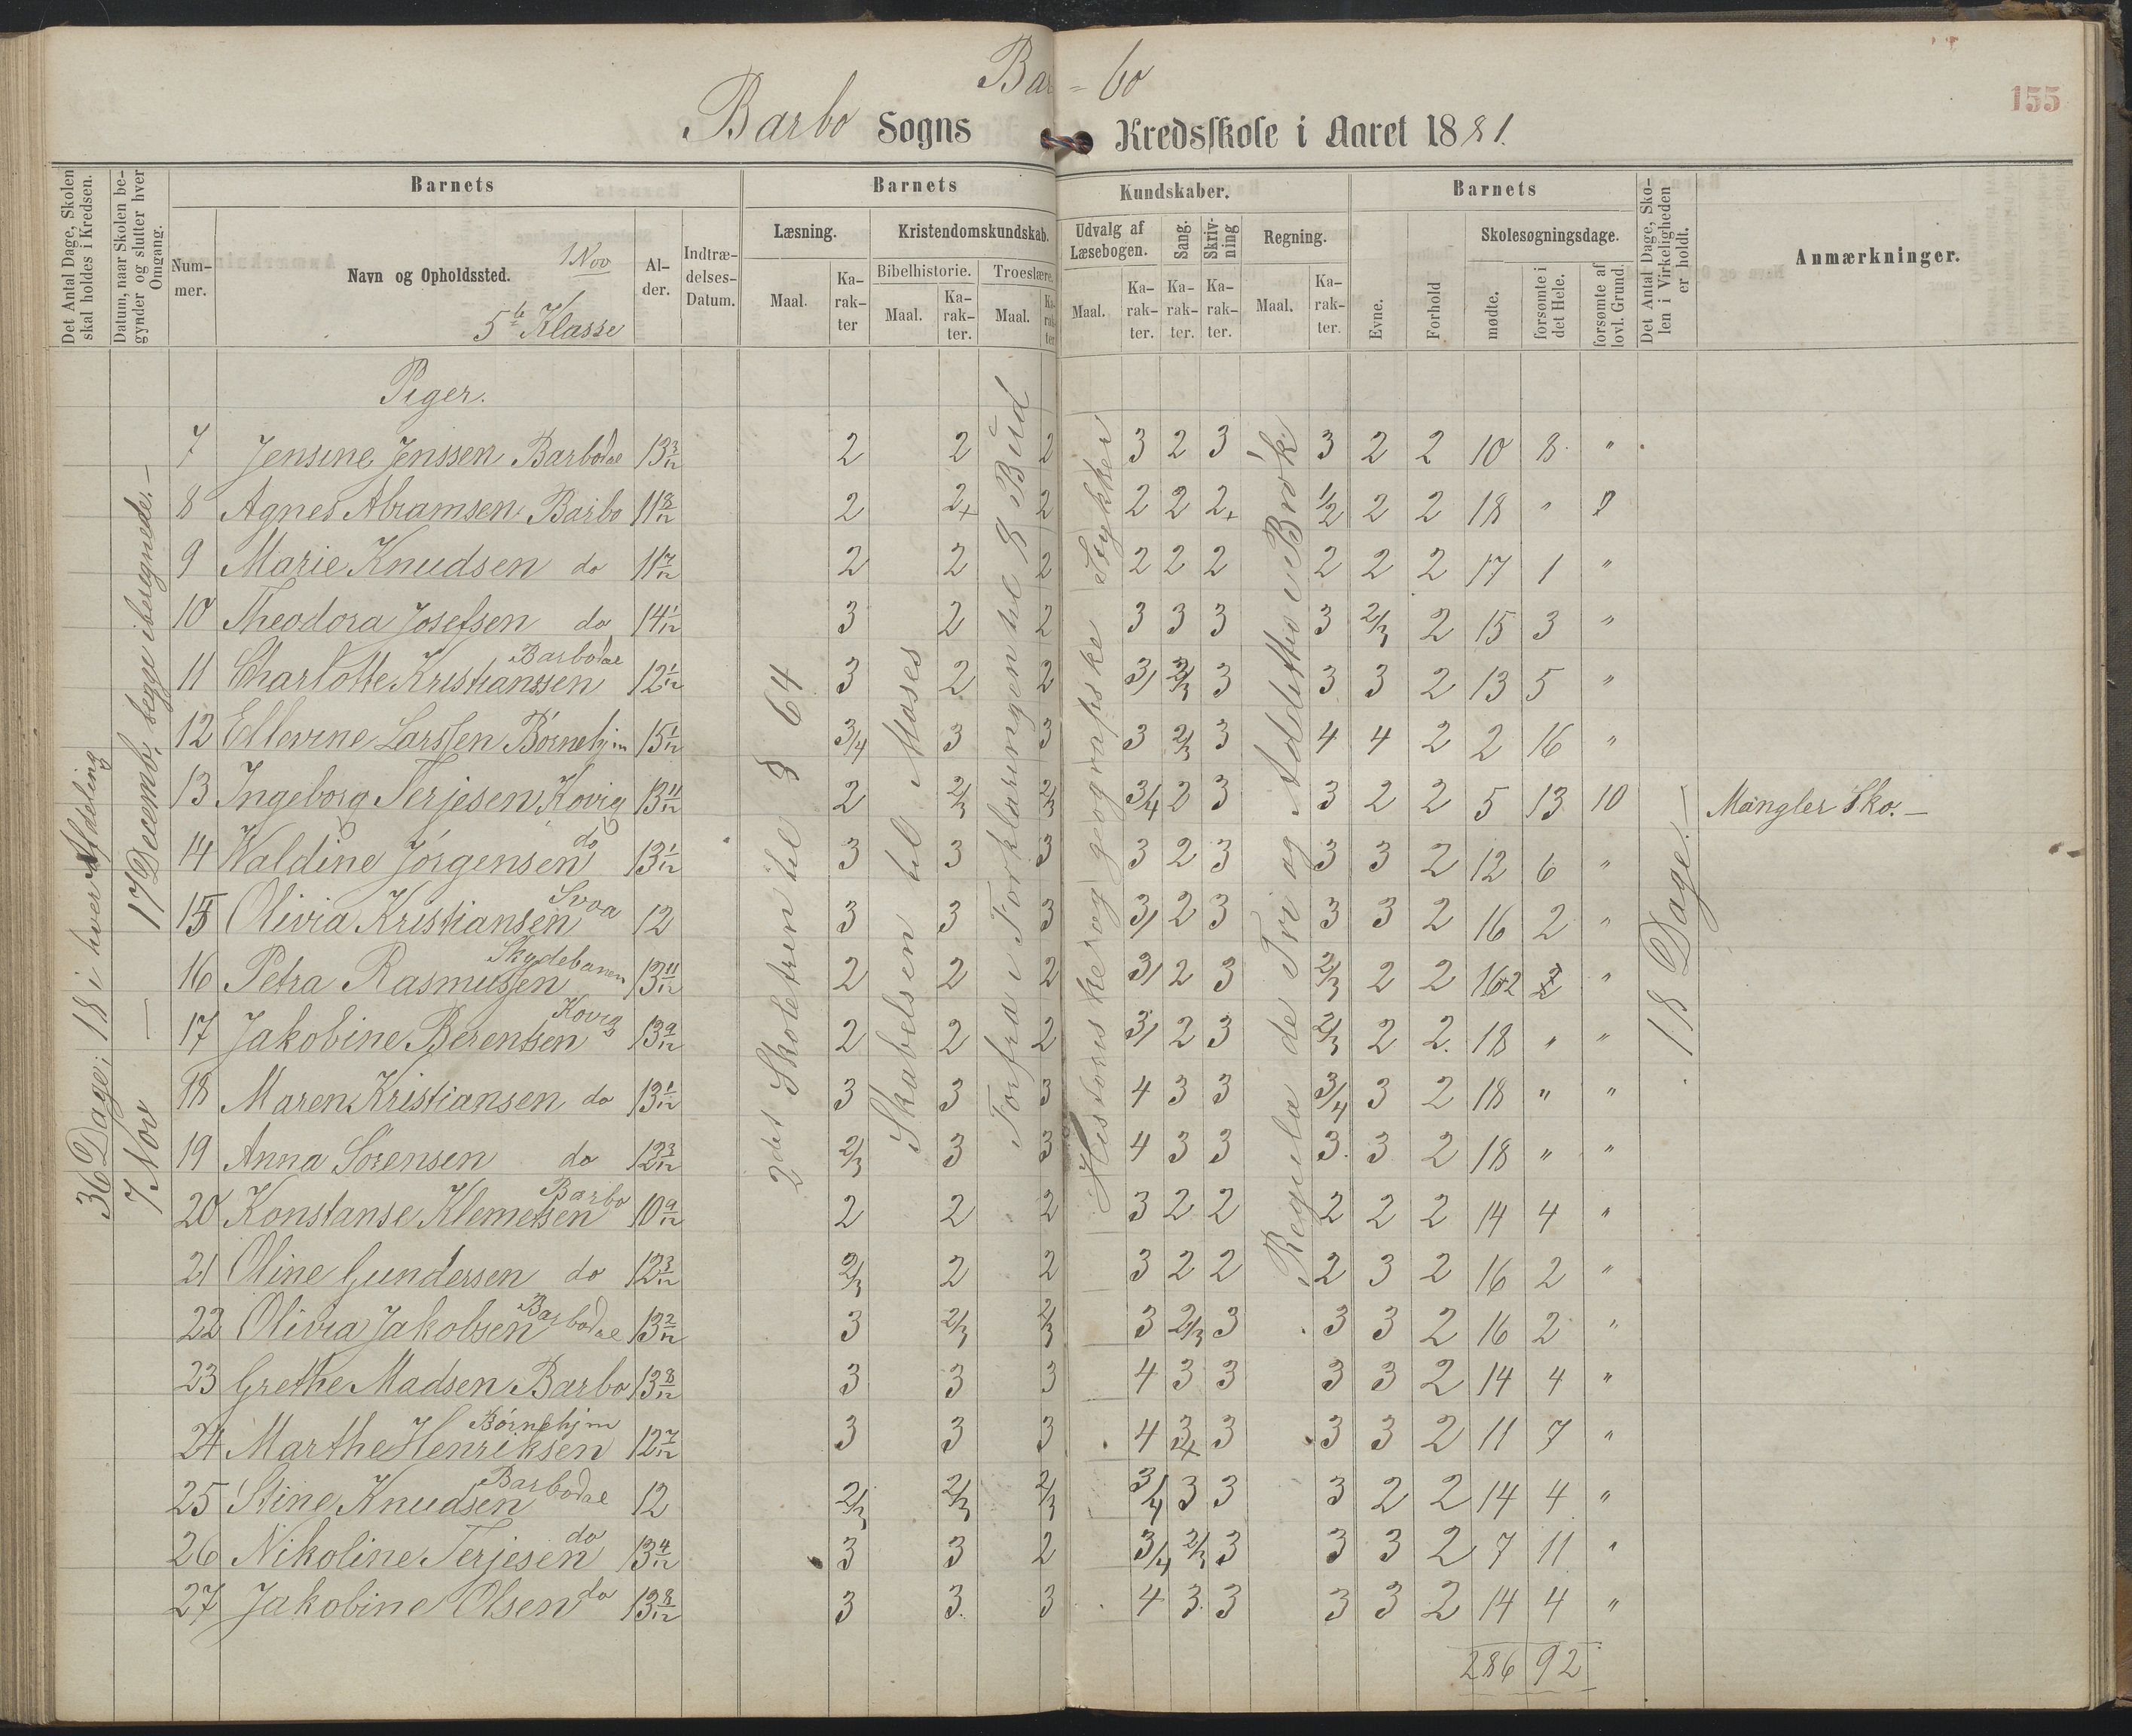 Bar=bo
155
Barbo Sogns Kredsskole i Aaret 1881.
Det Antal Dage, Skolen skal holdes i Kredsen.
Datum, naar Skolen begynder og slutter hver Omgang.
Barnets
Nummer.
Navn og Opholdssted.
1 Nov
5te Klasse
Alder.
Indtrædelses-Datum.
Barnets Kundskaber.
Læsning.
Maal.
Karakter
Kristendomskundskab.
Bibelhistorie.
Maal.
Karakter.
Troeslære.
Maal.
Karakter
Udvalg af Læsebogen.
Maal.
Karakter.
Sang.
Karakter.
Skrivning
Karakter.
Regning.
Maal.
Karakter.
Barnets
Evne.
Forhold
Skolesøgningsdage.
mødte.
forsømte i det Hele.
forsømte af lovl. Grund.
Det Antal Dage, Skolen i Virkeligheden er holdt.
Anmærkninger.
36 Dage; 18 i hver Afdeling
7 Nov — 17 Decemb, begge iberegnede. —
2det Skoletrin til § 64
Skabelsen til Moses
Forfra i Forklaringen til 8 Bud
Historiske og geografiske Stykker
Regula de Tri og Addition i Brøk
18 Dage. —
Piger.
7 Jensine Jenssen Barbodal 13 3/12 2 2 2 3 2 3 3 2 2 10 8 "
8 Agnes Abramsen Barbo 11 8/12 2 2+ 2 2 2 2+ 1/2 2 2 18 "
9 Marie Knudsen do 11 7/12 2 2 2 2 2 2 2 2 2 17 1 "
10 Theodora Josefsen do 14 1/12 3 2 2 3 3 3 3 2/3 2 15 3 "
11 Charlotte Kristianssen Barbodal 12 1/12 3 2 2 3/ 2/3 3 3 3 2 13 5 "
12 Ellevine Larssen Børnehjm 15 1/12 3/4 3 3 3 2/3 3 4 4 2 2 16 "
13 Ingeborg Terjesen, Kovig 13 11/12 2 2/3 2/3 3/4 2 3 3 2 2 5 13 10 Mangler Sko. —
14 Waldine Jörgensen do 13 1/12 3 3 3 3 2 3 3 3 2 12 6 "
15 Olivia Kristiansen Svoa 12 3 3 3 3/ 2 3 3 3 2 16 2 "
16 Petra Rasmussen Skydebanen 13 11/12 2 2 2 3/ 2 3 2/3 2 2 16 2 "
17 Jakobine Berentsen Kovig 13 9/12 2 2 2 3/ 2 3 2/3 2 2. 18 " "
18 Maren Kristiansen do 13 1/12 3 3 3 4 3 3 3/4 3 2 18 " "
19 Anna Sörensen do 12 3/12 2/3 3 3 4 3 3 3. 3 2 18 " "
20 Konstanse Klemetsen Barbo 10 9/12 2 2 2 3 2 2 2 2 2 14 4 "
21 Oline Gundersen do 12 3/12 2/3 2 2 3 2 2 2 3 2 16 2 "
22 Olivia Jakobsen Barbodal 13 2/12 3 2/3 2/3 3 2/3 3 3 3 2 16 2 "
23 Grethe Madsen Barbo 13 8/12 3 3 3 4 3 3 3 3 2 14 4 "
24 Marthe Henriksen Börnehjm 12 7/12 3 3 3 4 3+ 3 3 3 2 11 7 "
25 Stine Knudsen Barbodal 12 2/3 2/3 2/3 3/4 3 3 3 2 2 14 4 "
26 Nikoline Terjesen do 13 4/12 3 3 2 3/4 2/3 3 3 3 2 7 11 "
27 Jakobine Olsen do 13 8/12 3 3. 3 4 3 3 3 3 2 14 4 "
286 92